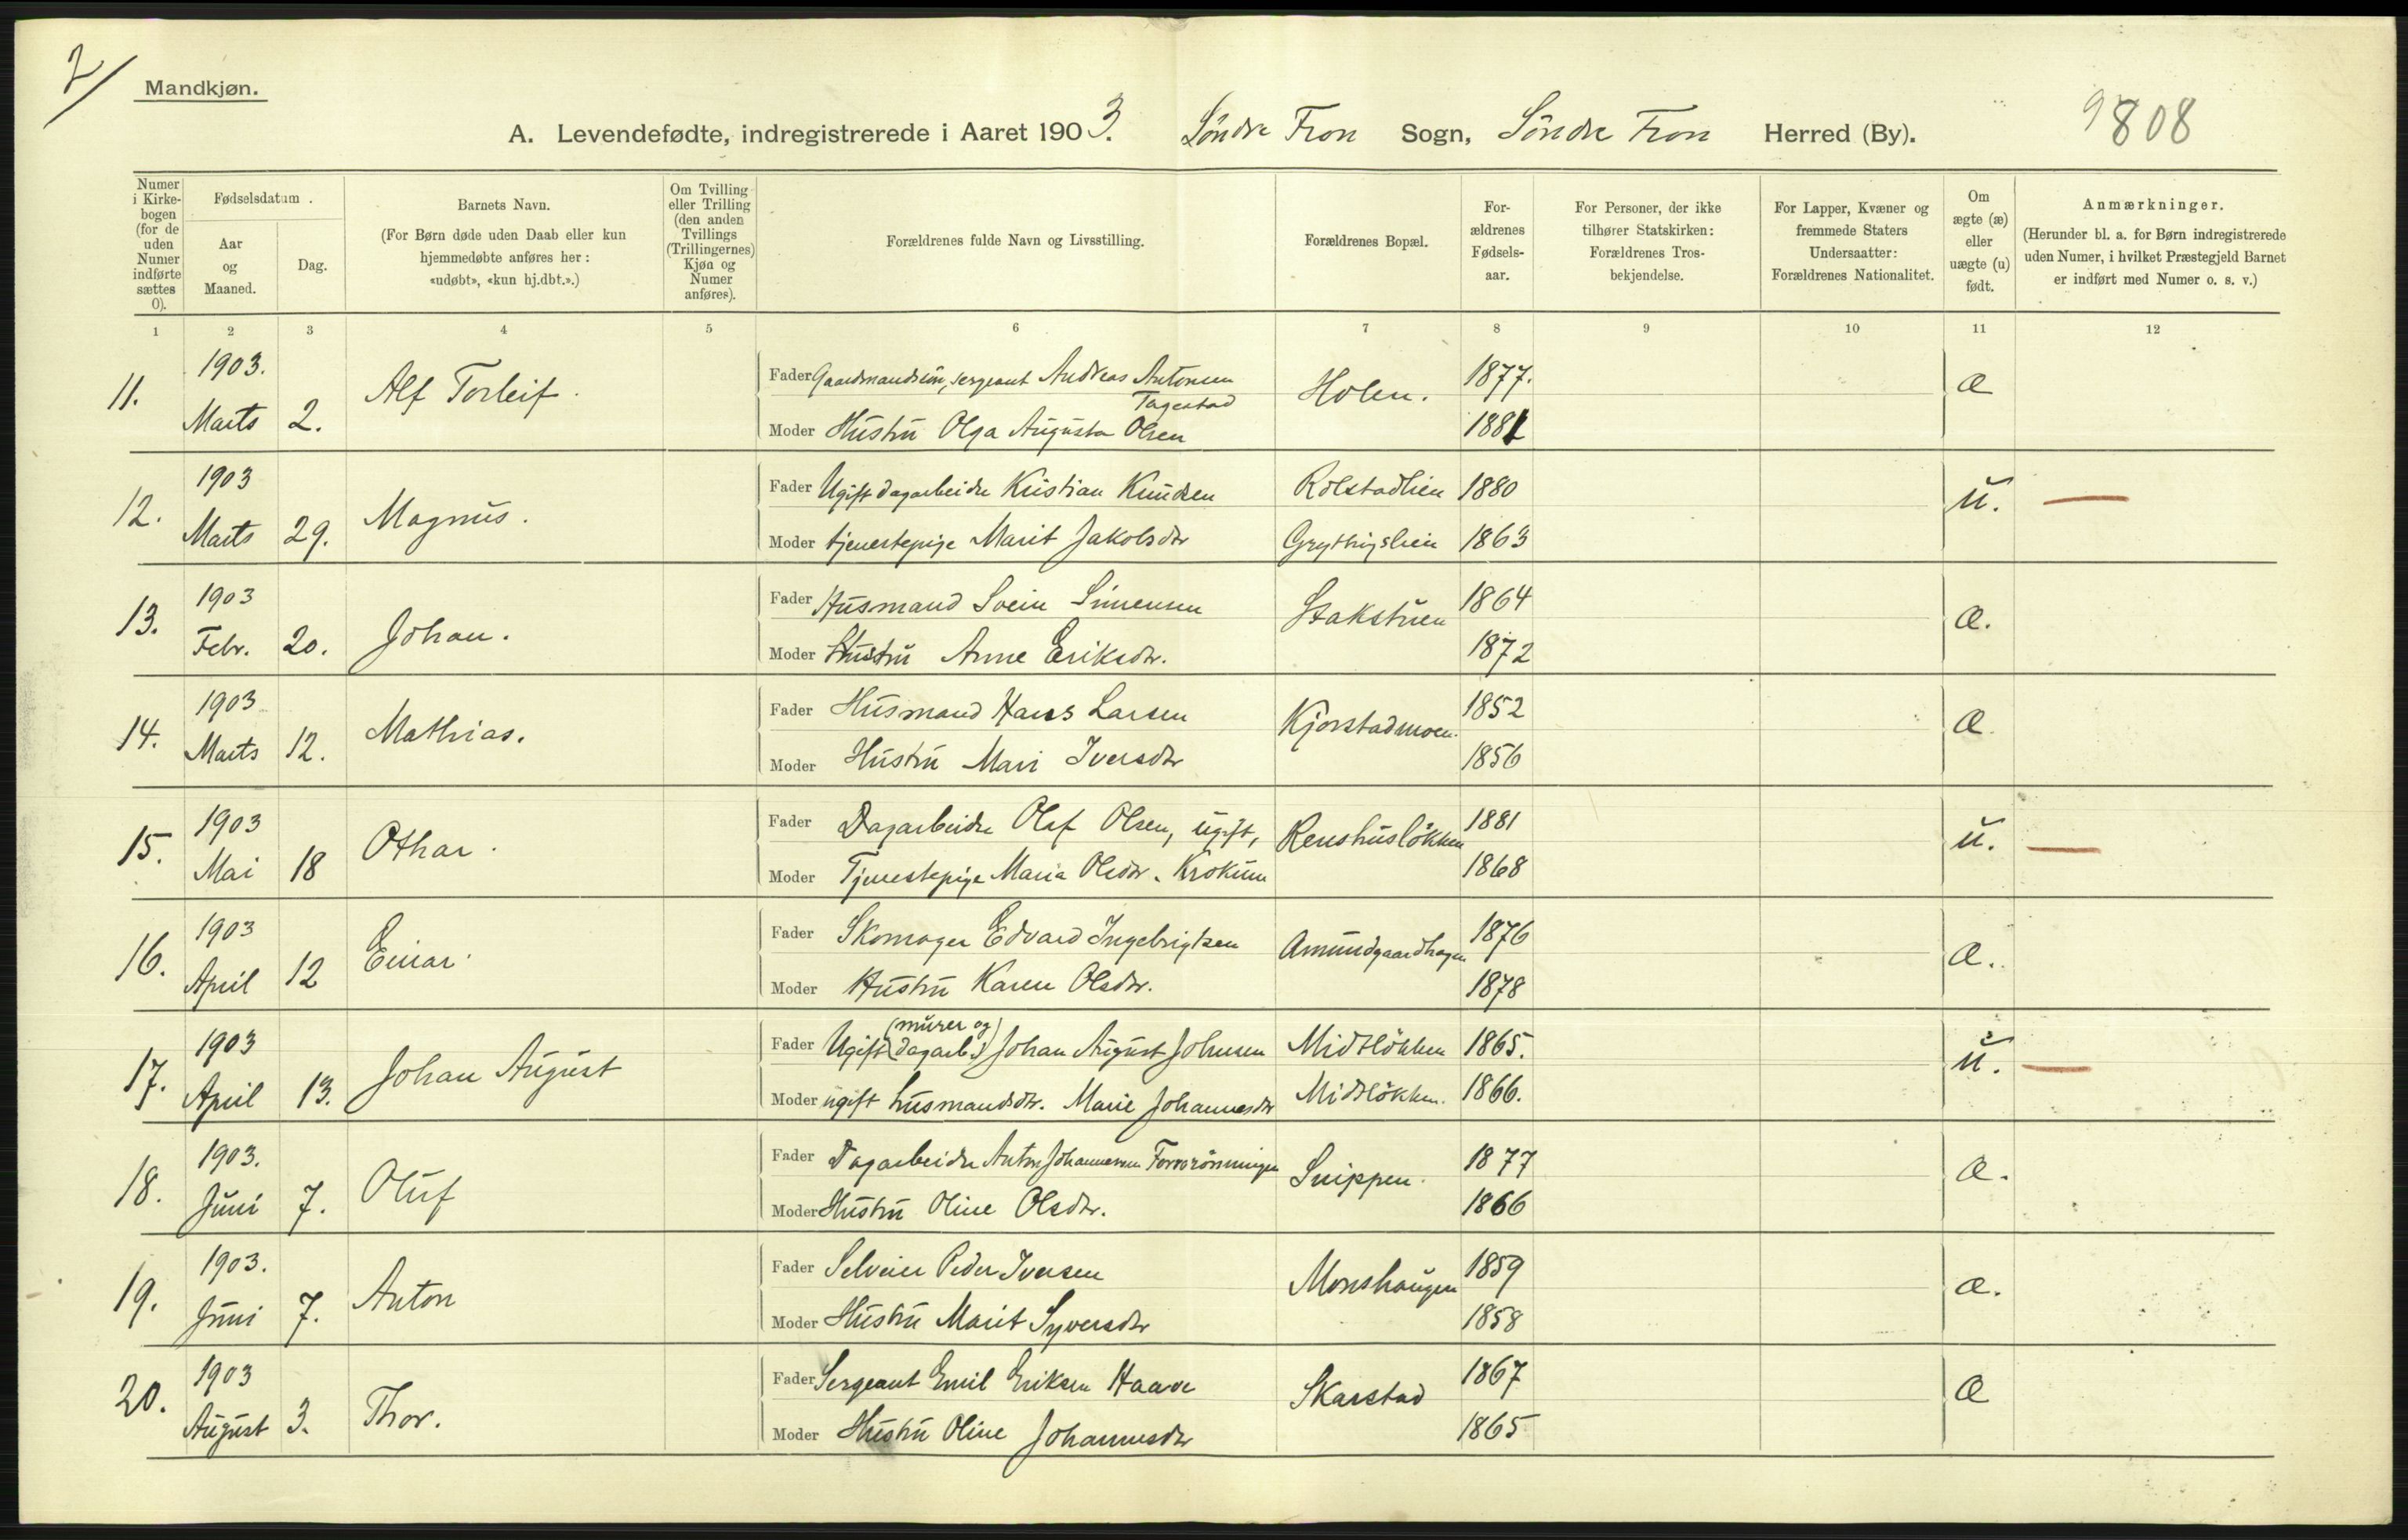 2/
Mandkjøn.
A. Levendefødte, indregistrerede i Aaret 1903. Söndre Fron Sogn, Söndre Fron Herred (By).
9808
Numer i Kirkebogen (for de uden Numer indførte sættes 0).
Fødselsdatum.
Aar og Maaned.
Dag.
Barnets Navn.
(For Børn døde uden Daab eller kun hjemmedøbte anføres her: «udøbt», «kun hj.dbt.».)
Om Tvilling eller Trilling (den anden Tvillings (Trillingernes) Kjøn og Numer anføres).
Forældrenes fulde Navn og Livsstilling.
Forældrenes Bopæl.
Forældrenes Fødselsaar.
For Personer, der ikke tilhører Statskirken: Forældrenes Trosbekjendelse.
For Lapper, Kvæner og fremmede Staters Undersaatter: Forældrenes Nationalitet.
Om ægte (æ) eller uægte (u) født.
Anmærkninger.
(Herunder bl. a. for Børn indregistrerede uden Numer, i hvilket Præstegjeld Barnet er indført med Numer o. s. v.)
1 2 3 4 5 6 7 8 9 10 11 12
11. 1903. Marts 2. Alf Torleif.
Fader Gaardmandssön, sergeant Andreas Antonsen Tagestad Holen. 1877. æ
Moder Hustru Olga Augusta Olsen 1881
12. 1903 Marts 29. Magnus.
Fader Ugift dagarbeider Kristian Knudsen Rolstadlien 1880 u.
Moder tjenestepige Marit Jakobsdtr Grythingslien 1863
13. 1903 Febr. 20. Johan.
Fader Husmand Svein Simensen Stakstuen 1864 æ.
Moder Hustru Anne Eriksdtr. 1872
14. 1903 Marts 12. Mathias.
Fader Husmand Hans Larsen Kjorstadmoen. 1852 æ
Moder Hustru Mari Iversdtr 1856
15. 1903 Mai 18 Othar.
Fader Dagarbeider Olaf Olsen, ugift, Renshuslökken 1881 u.
Moder Tjenestepige Maria Olsdtr. Krokum 1868
16. 1903 April 12 Einar.
Fader Skomager Edvard Ingebrigtsen Amundgaardhagen 1876 æ.
Moder Hustru Karen Olsdtr. 1878
17. 1903 April 13. Johan August
Fader Ugift (murer og dagarb.) Johan August Johnsen Midtlökken 1865. u.
Moder ugift husmandsdtr. Marie Johannesdtr Midtlökken. 1866.
18. 1903. Juni 7. Oluf
Fader Dagarbeider Anton Johannesen Snippen. 1877 æ.
Moder Hustru Oline Olsdtr. 1866
19. 1903. Juni 7. Anton
Fader Selveier Peder Iversen Monshaugen 1859 æ.
Moder Hustru Marit Syversdtr 1858
20. 1903 August 3. Thor.
Fader Sergeant Emil Eriksen Haave Skarstad 1867 æ
Moder Hustru Oline Johannesdtr 1865